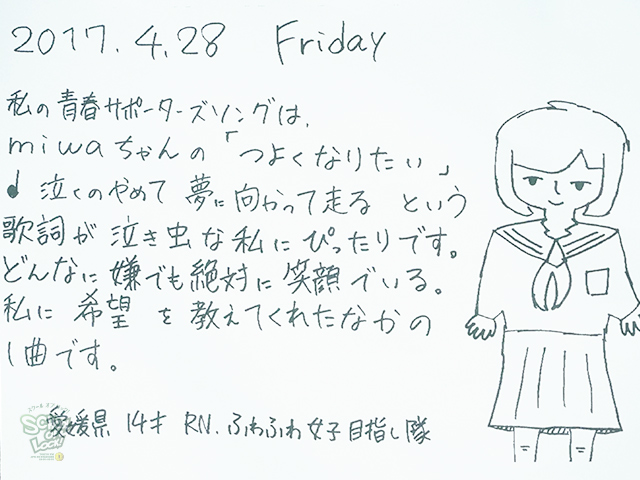 2017.4.28 Friday
私の青春サポーターズソングは、
miwaちゃんの「つよくなりたい」
♩泣くのやめて 夢に向かって走る という
歌詞が泣き虫な私にぴったりです。
どんなに嫌でも絶対に笑顔でいる。
私に希望を教えてくれたなかの
1曲です。
愛媛県 14才 RN.ふわふわ女子目指し隊
SCHOOL OF LOCK!